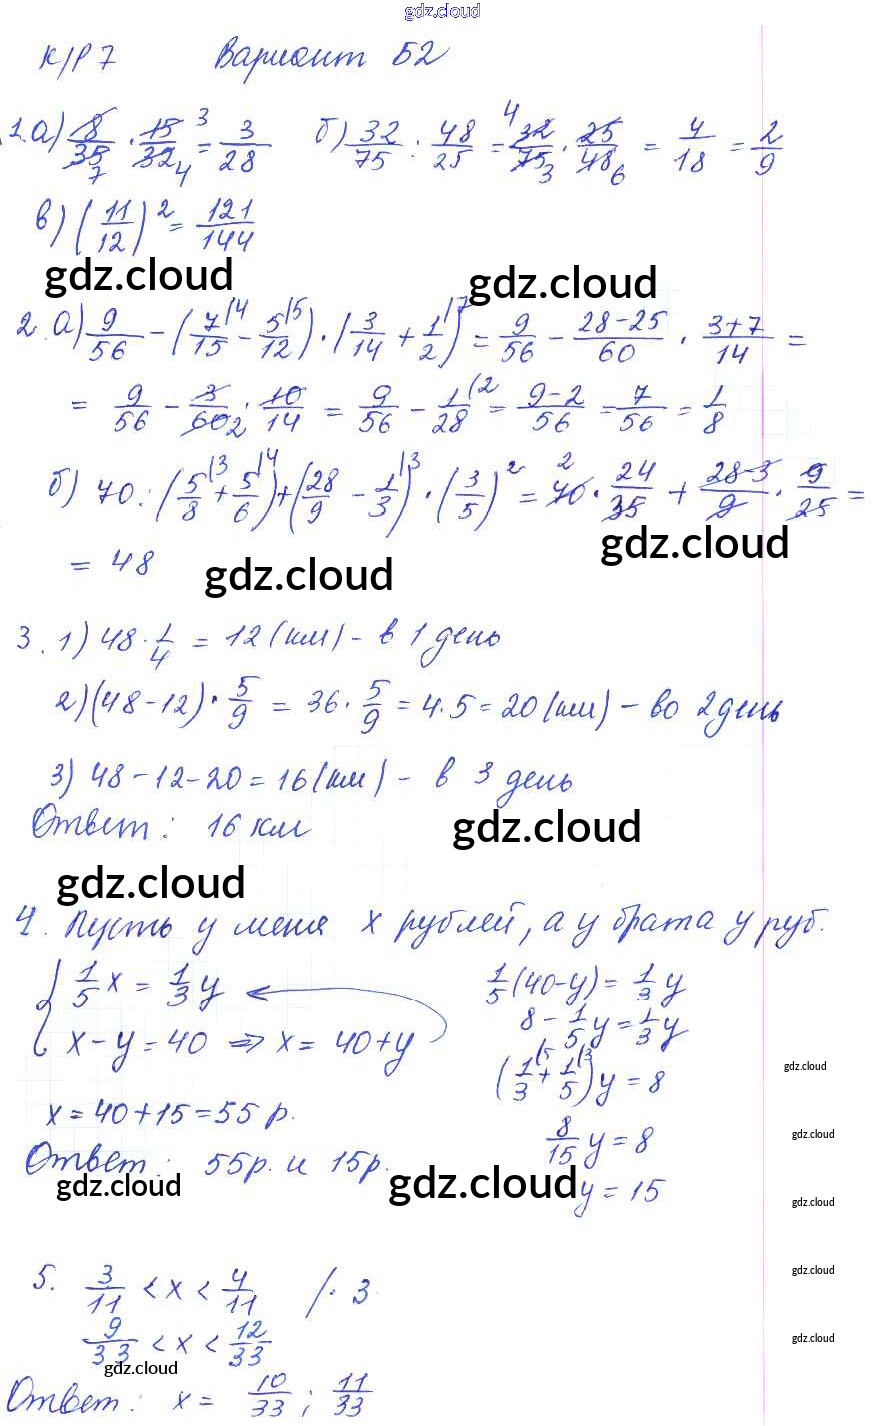 gdz.cloud
К/Р 7 Вариант Б2
1. а) 8/35 · 15/32 = 3/28 б) 32/75 : 48/25 = 32/75 · 25/48 = 4/18 = 2/9
в) (11/12)² = 121/144
gdz.cloud gdz.cloud
2. а) 9/56 - (7/15 - 5/12) · (3/14 + 1/2) = 9/56 - 28-25/60 · 3+7/14 =
= 9/56 - 3/60 · 10/14 = 9/56 - 1/28 = 9-2/56 = 7/56 = 1/8
б) 70 : (5/8 + 5/6) + (28/9 - 1/3) · (3/5)² = 70 · 24/35 + 28-3/9 · 9/25 =
= 48
gdz.cloud gdz.cloud
3. 1) 48 · 1/4 = 12 (км) - в 1 день
2) (48-12) · 5/9 = 36 · 5/9 = 4·5 = 20 (км) - во 2 день
3) 48-12-20 = 16 (км) - в 3 день
Ответ: 16 км
gdz.cloud
gdz.cloud
4. Пусть у меня x рублей, а у брата y руб.
1/5 x = 1/3 y 1/5 (40-y) = 1/3 y
x - y = 40 => x = 40+y 8 - 1/5 y = 1/3 y
(1/3 + 1/5) y = 8
gdz.cloud
x = 40+15 = 55 р. 8/15 y = 8
gdz.cloud
Ответ: 55р. и 15р.
gdz.cloud gdz.cloud y = 15
gdz.cloud
5. 3/11 < x < 4/11 /· 3
gdz.cloud
9/33 < x < 12/33
gdz.cloud
gdz.cloud
Ответ: x = 10/33 ; 11/33